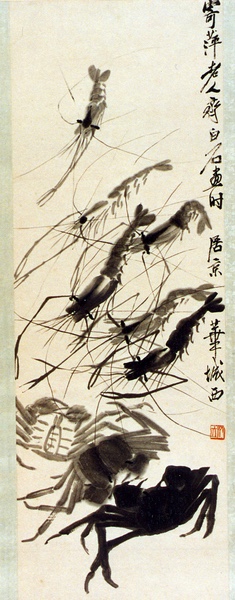 寄萍老人齐白石画时居京华城西